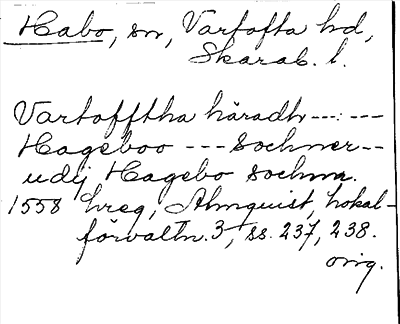 Habo, sn, Vartofta hd,
Skarab. l.
Vartofftha häradh---:---
Hageboo --- Sochner--
udij Hagebo sochnn.
1558 hreg, Almquist, Lokal-
förvaltn. 3, ss. 237, 238.
orig.